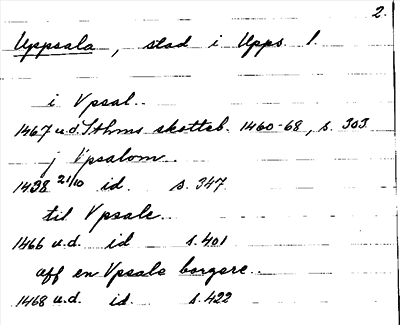 2.
Uppsala, stad i Upps l.
i Vpsal..
1467 u.d. Sthms skotteb. 1460-68, s. 303
j Vpsalom..
1498 21/10 id. s. 347
til Vpsale..
1466 u.d. id s. 401
aff en Vpsala borgere..
1468 u.d. id. s. 422